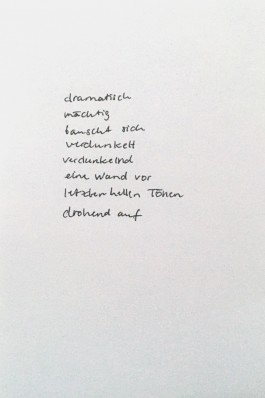 dramatisch
mächtig
bauscht sich
verdunkelt
verdunkelnd
eine Wand vor
letzten hellen Tönen
drohend auf